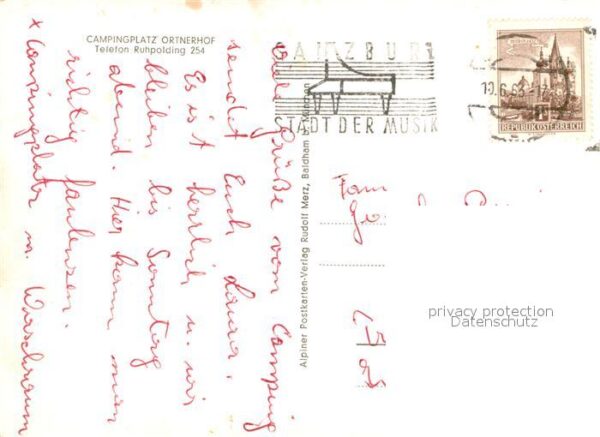 CAMPINGPLATZ ORTNERHOF
Telefon Ruhpolding 254
Viele Grüße vom Camping
sendet Euch Laura.
Es ist herrlich u. wir
bleiben bis Sonntag
abend. Hier kann man
richtig faulenzen.
x Campingplatz m. Waschraum
Alpiner Postkarten-Verlag Rudolf Merz, Baldham b. München
SALZBURG
STADT DER MUSIK
REPUBLIK ÖSTERREICH
Fam
privacy protection
Datenschutz